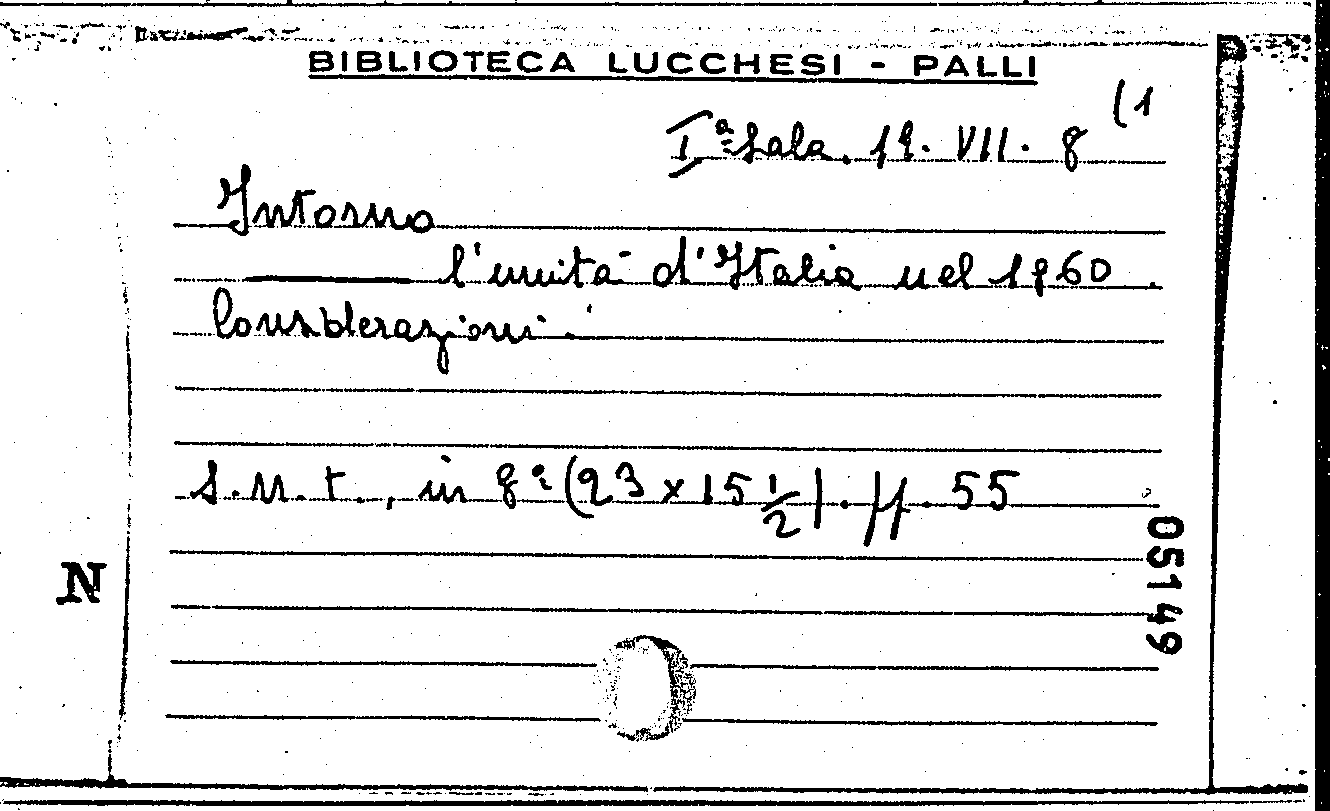 BIBLIOTECA LUCCHESI - PALLI
Iª Sala. 19. VII. 8 (1
Intorno
l'unità d'Italia nel 1860.
Considerazioni.
s.n.t., in 8º (23 x 15 1/2). pp. 55
N
05149